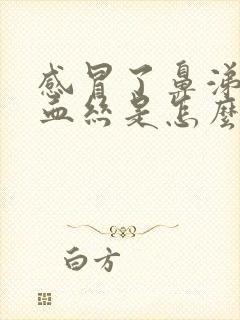 感冒了鼻涕
血丝是怎麽
白方